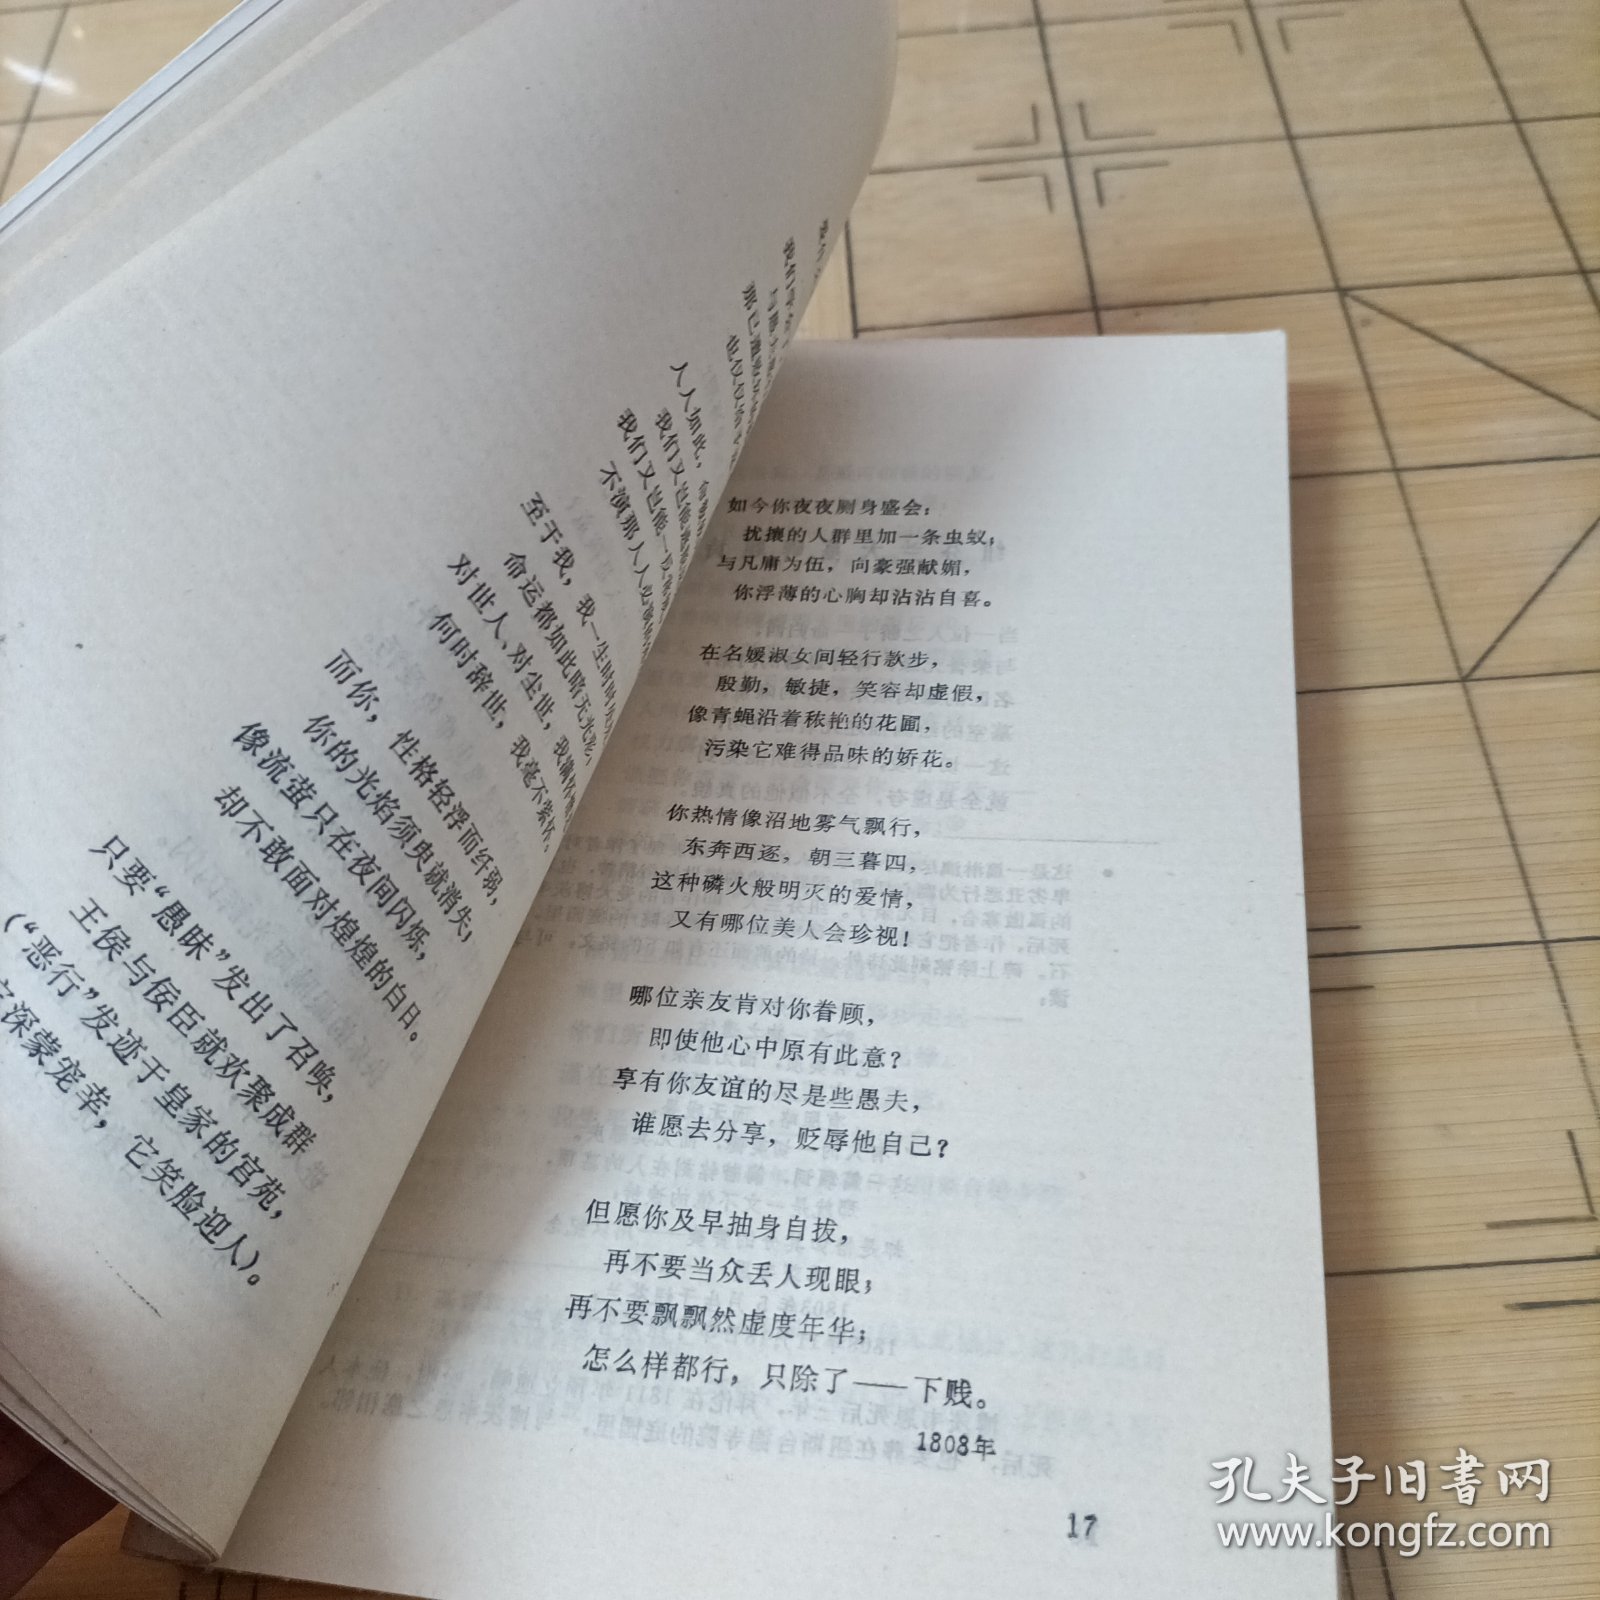 人人如此，
我们又也能
我们又也能一
不演那人人
至于我，我一生时时
命运都如此暗无光彩，
对世人、对尘世，我满怀
何时辞世，我毫不萦怀。
而你，性格轻浮而纤弱，
你的光焰须臾就消失，
像流萤只在夜间闪烁，
却不敢面对煌煌的白日。
只要“愚昧”发出了召唤，
王侯与佞臣就欢聚成群
（“恶行”发迹于皇家的宫苑，
深蒙宠幸，它笑脸迎人）。
如今你夜夜厕身盛会；
扰攘的人群里加一条虫蚁；
与凡庸为伍，向豪强献媚，
你浮薄的心胸却沾沾自喜。
在名媛淑女间轻行款步，
殷勤，敏捷，笑容却虚假，
像青蝇沿着秾艳的花圃，
污染它难得品味的娇花。
你热情像沼地雾气飘行，
东奔西逐，朝三暮四，
这种磷火般明灭的爱情，
又有哪位美人会珍视！
哪位亲友肯对你眷顾，
即使他心中原有此意？
享有你友谊的尽是些愚夫，
谁愿去分享，贬辱他自己？
但愿你及早抽身自拔，
再不要当众丢人现眼；
再不要飘飘然虚度年华；
怎么样都行，只除了——下贱。
1808年
17
孔夫子旧书网
www.kongfz.com